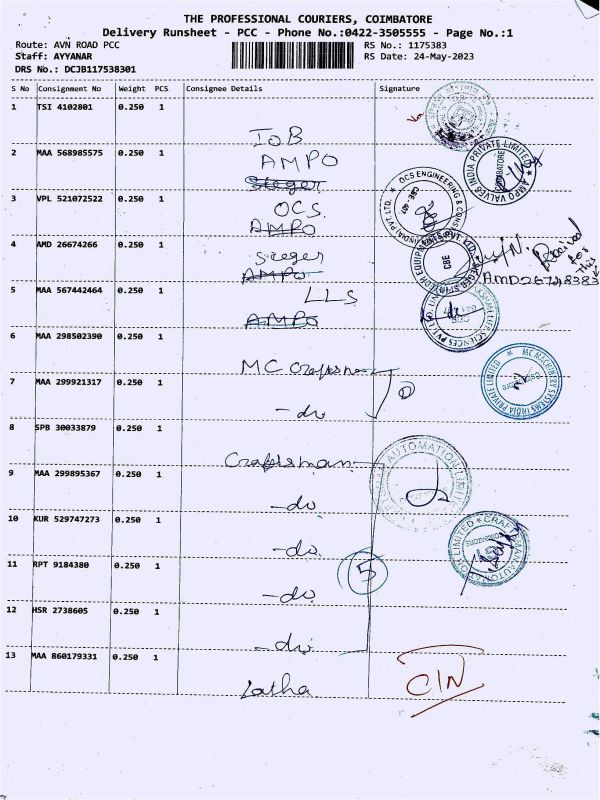 THE PROFESSIONAL COURIERS, COIMBATORE
Delivery Runsheet - PCC - Phone No.:0422-3505555 - Page No.:1
Route: AVN ROAD PCC
RS No.: 1175383
Staff: AYYANAR
RS Date: 24-May-2023
DRS No.: DCJB117538301
S No Consignment No Weight PCS Consignee Details Signature
1 TSI 4102801 0.250 1
IOB
2 MAA 568985575 0.250 1
AMPO
Sieger
AMPO VALVES INDIA PRIVATE LIMITED
3 VPL 521072522 0.250 1
OCS
AMPO
OCS ENGINEERING & CONS (INDIA) PVT. LTD.
4 AMD 26674266 0.250 1
Sieger
AMPO
CBE
Received for This
AMD26748383
5 MAA 567442464 0.250 1
LLS
AMPO
6 MAA 298502390 0.250 1
MC Craftsman
MC MACHINERY SYSTEMS INDIA PRIVATE LIMITED
7 MAA 299921317 0.250 1
-do
8 SPB 30033879 0.250 1
Craftsman
AUTOMATION LIMIT
9 MAA 299895367 0.250 1
-do
10 KUR 529747273 0.250 1
-do
11 RPT 9184380 0.250 1
-do
5
12 HSR 2738605 0.250 1
-do
13 MAA 860179331 0.250 1
Latha
C/N